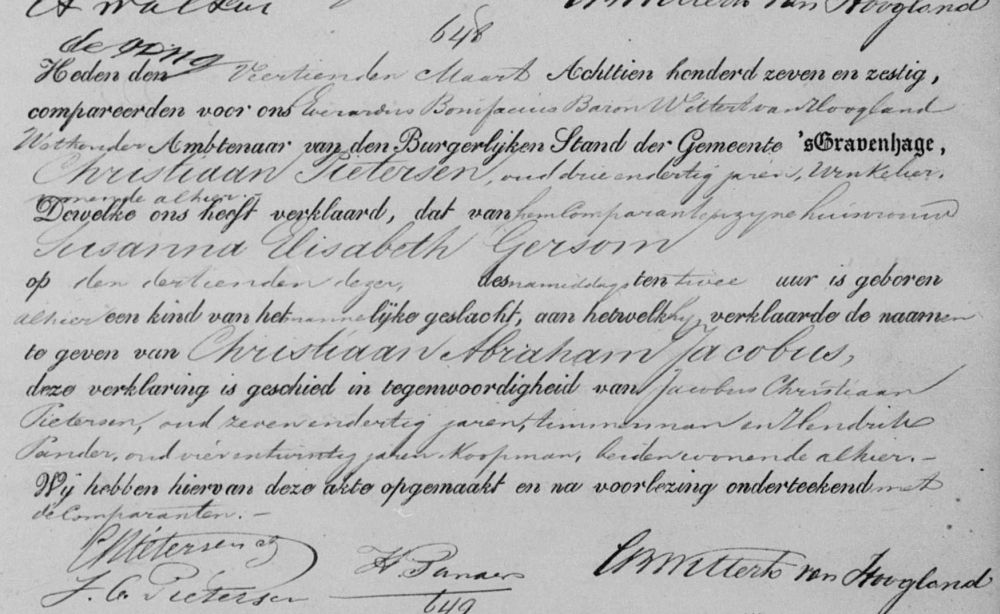 van Hoogland
648
Heden den Veertienden Maart Achttien honderd zeven en zestig,
compareerden voor ons Everardus Bonifacius Baron Wittert van Hoogland
Wethouder Ambtenaar van den Burgerlijken Stand der Gemeente 'sGravenhage,
Christiaan Pietersen, oud drie en dertig jaren, Winkelier,
wonende alhier,
Dewelke ons heeft verklaard, dat van hem Comparant en zyne huisvrouw
Susanna Elisabeth Gersom
op den dertienden dezer, des namiddags ten twee uur is geboren
alhier een kind van het mannelijke geslacht, aan hetwelk hij verklaarde de naamen
te geven van Christiaan Abraham Jacobus,
deze verklaring is geschied in tegenwoordigheid van Jacobus Christiaan
Pietersen, oud zeven en dertig jaren, timmerman en Hendrik
Pander, oud vier en twintig jaren Koopman, beiden wonende alhier.—
Wij hebben hiervan deze akte opgemaakt en na voorlezing onderteekend met
de Comparanten.—
Pietersen
H. Pander
van Hoogland
J. C. Pietersen
649